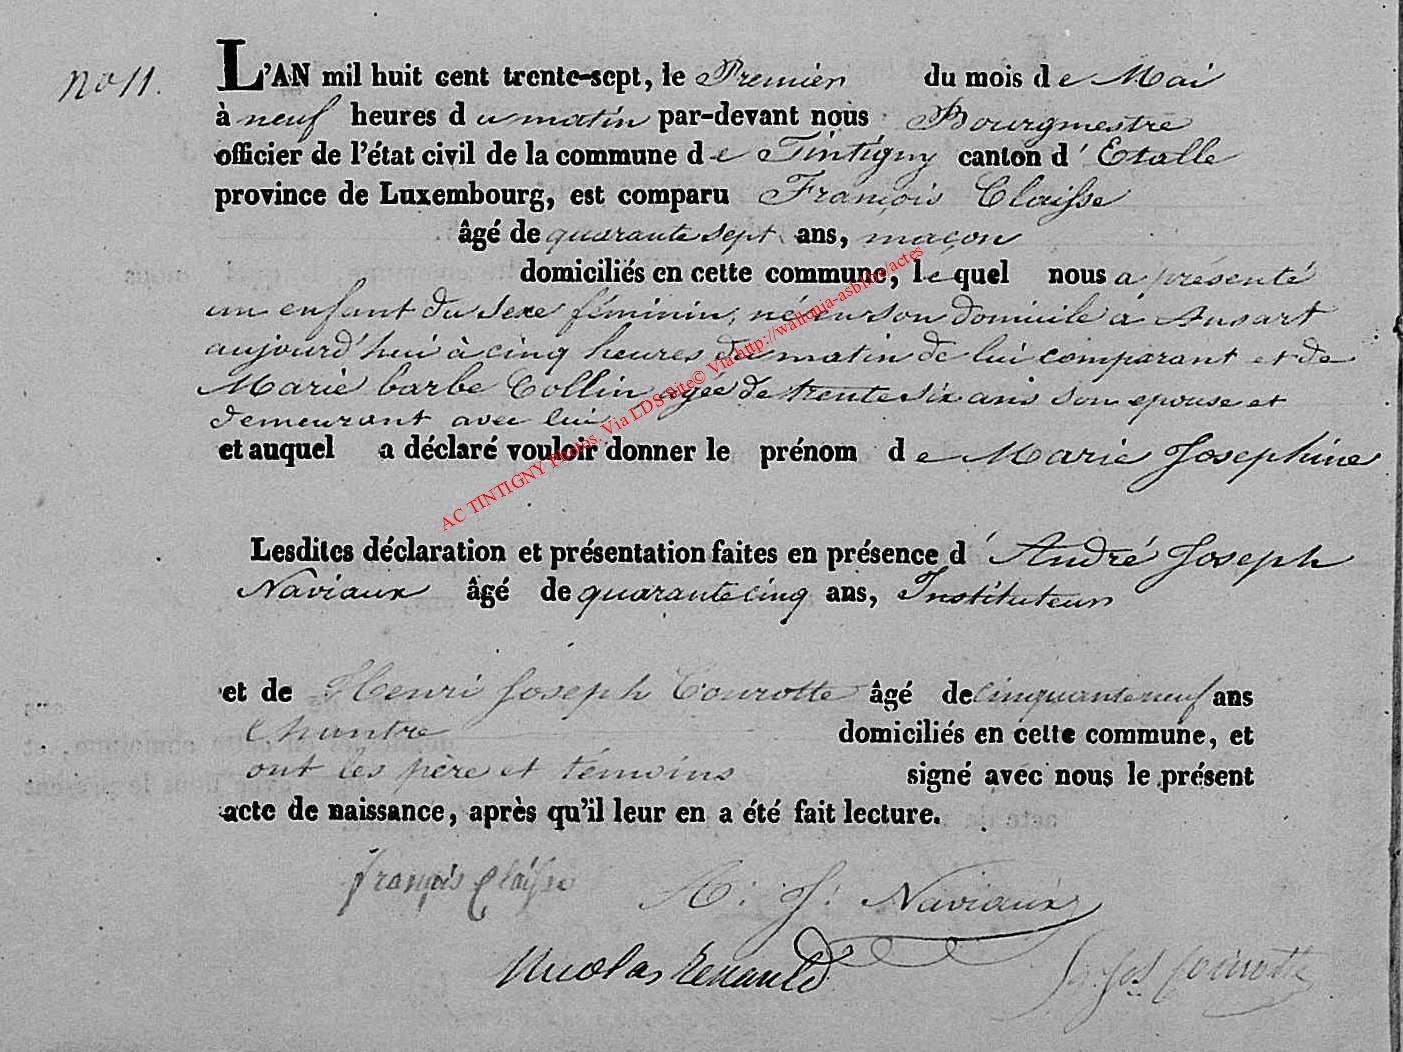 No 11.
L'AN mil huit cent trente-sept, le Premier du mois de Mai
à neuf heures du matin par-devant nous Bourgmestre
officier de l'état civil de la commune de Tintigny canton d'Etalle
province de Luxembourg, est comparu François Claisse
âgé de quarante sept ans, maçon
domiciliés en cette commune, lequel nous a présenté
un enfant du sexe féminin, né en son domicile à Ansart
aujourd'hui à cinq heures du matin de lui comparant et de
Marie barbe Collin agée de trente six ans son epouse et
demeurant avec lui
et auquel a déclaré vouloir donner le prénom de Marie Josephine
AC TINTIGNY Photos. Via LDS Site© Via http://wallonia-asbl.be/actes
Lesdites déclaration et présentation faites en présence d'André Joseph
Naviaux âgé de quarante cinq ans, Instituteur
et de Henri Joseph Courotte âgé de cinquante neuf ans
Chantre domiciliés en cette commune, et
ont les père et témoins signé avec nous le présent
acte de naissance, après qu'il leur en a été fait lecture.
françois Claisse A. J. Naviaux
Nicolas Renauld Courotte